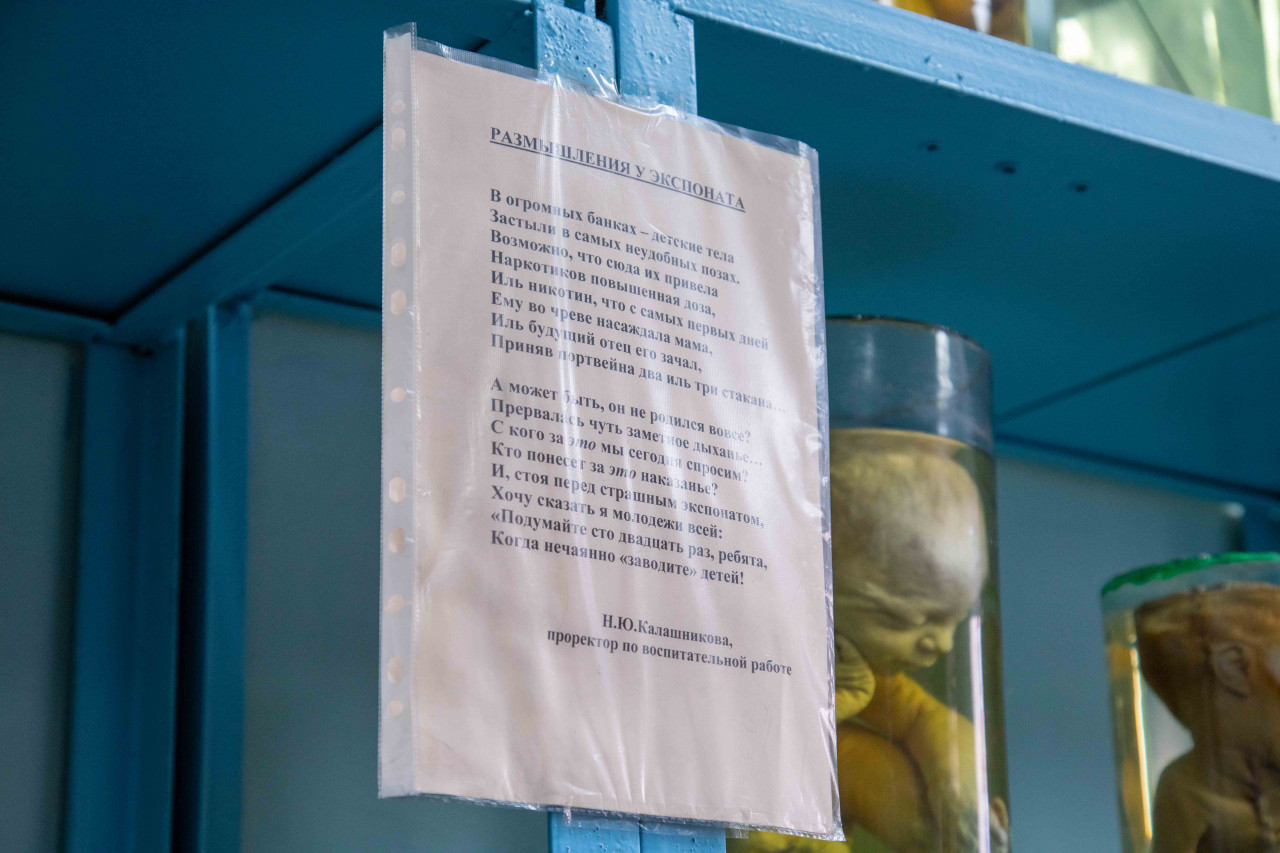 РАЗМЫШЛЕНИЯ У ЭКСПОНАТА
В огромных банках – детские тела
Застыли в самых неудобных позах.
Возможно, что сюда их привела
Наркотиков повышенная доза,
Иль никотин, что с самых первых дней
Ему во чреве насаждала мама,
Иль будущий отец его зачал,
Приняв портвейна два иль три стакана...
А может быть, он не родился вовсе?
Прервалась чуть заметное дыханье...
С кого за это мы сегодня спросим?
Кто понесет за это наказанье?
И, стоя перед страшным экспонатом,
Хочу сказать я молодежи всей:
«Подумайте сто двадцать раз, ребята,
Когда нечаянно «заводите» детей!
Н.Ю.Калашникова,
проректор по воспитательной работе